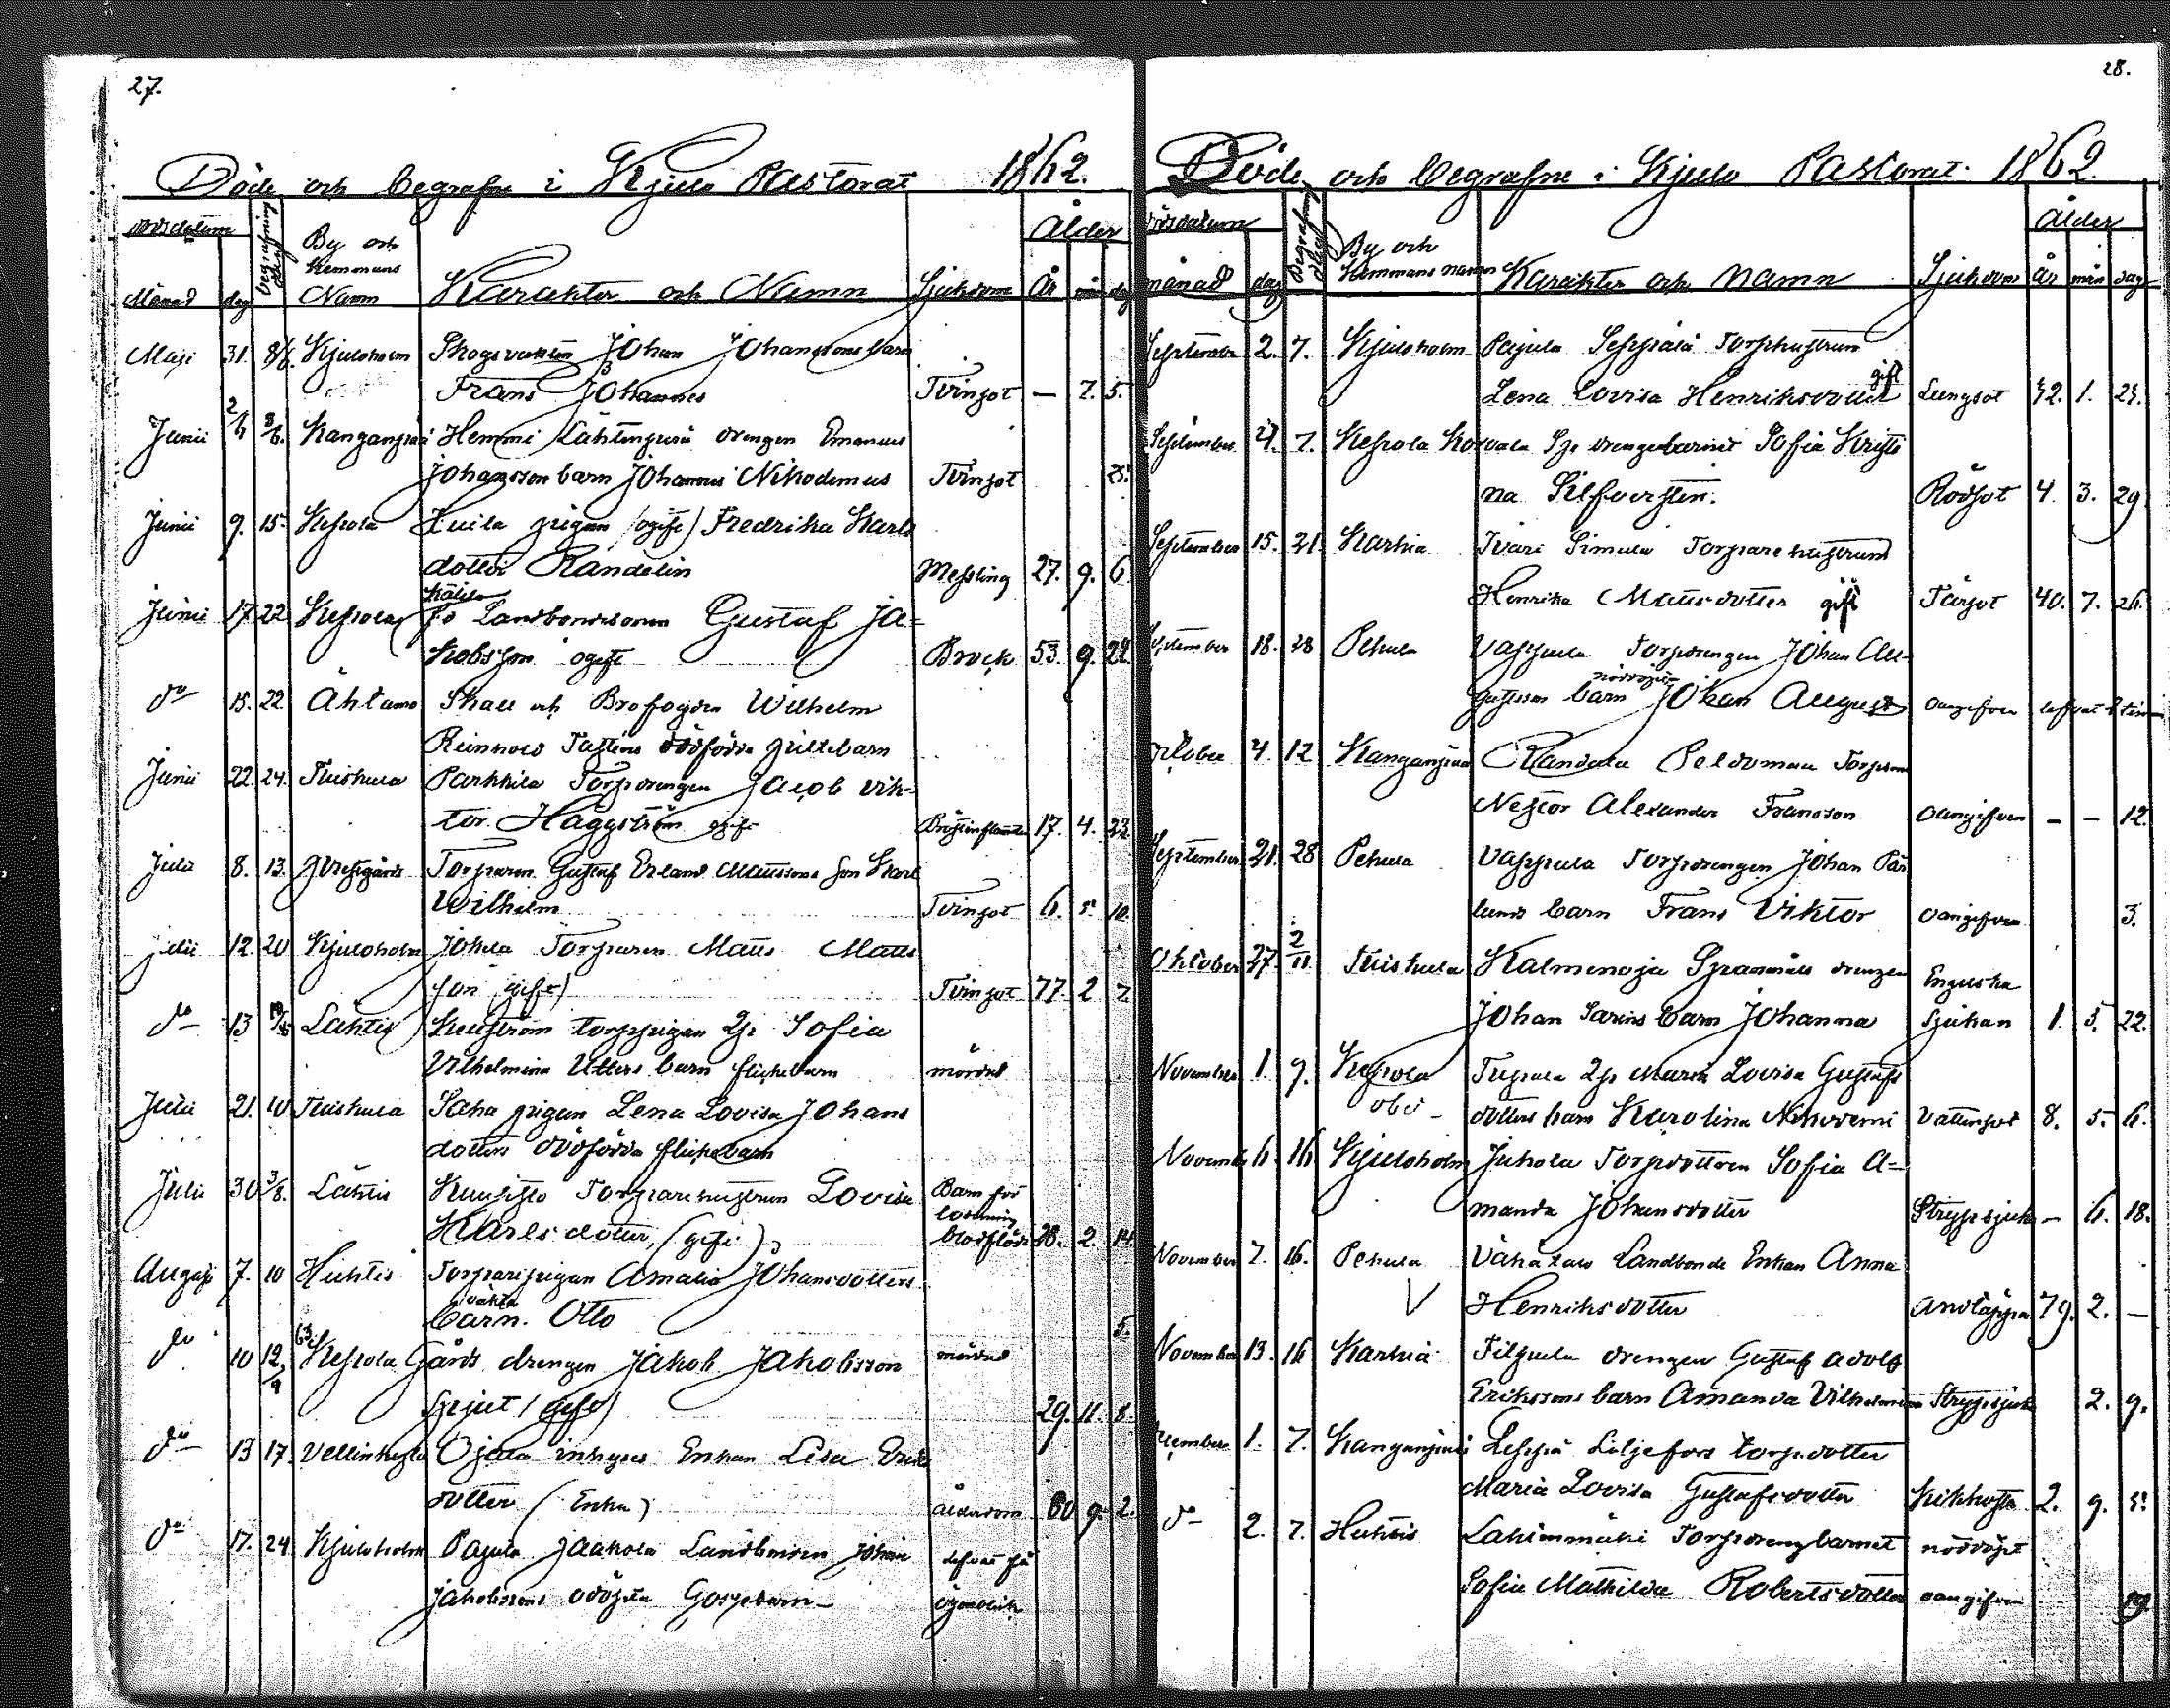 27.
Döde och begrafne i Kjulo Pastorat 1862.
dödsdatum
Begrafning dag
By och Hemmans Namn
Karakter och Namn
Sjukdom
Ålder
Månad dag
År mån dag
Maji 31. 8/6. Kjuloholm Skogsvakten Johan Johanssons barn
Frans Johannes Tvinsot — 7. 5.
Junii 2/6 8/6. Kanganpää Hemmi Lähtenperä drengen Emanuel
Johansson barn Johannes Nikodemus Tvinsot 25.
Junii 9. 15. Kepola Luila pigan (ogift) Fredrika Karls
dotter Randelin Messling 27. 9. 6
Junii 17 22 Kepola fd Landbondsonen Gustaf Ja=
kobsson ogift Brock 53. 9. 22
do 15. 22. Ähtamo Skall och Brofogden Wilhelm
Reinhold dödfödda giltebarn
Junii 22. 24. Tuiskula Parkkila Torpdrengen Jacob Vik-
tor Häggström ogift 17. 4. 22.
Julii 8. 13. Torparen Gustaf Erland Mattssons son Karl
Wilhelm Tvinsot 6. 5. 10.
Julii 12. 20 Kjuloholm Johela Torparen Matts Matts
son (gift) Tvinsot 77. 2 7.
do 13 Lähtis torppigan Sofia
Vilhelmina Utters barn flickebarn mördad
Julii 21. 10 Tuiskula Saha pigan Lena Lovisa Johans
dotters dödfödda flickebarn
Julii 30 3/8. Lähtis Kuusisto Torparehustrun Lovisa Barn för
Karlsdotter, (gift) lossning blodflöde 28. 2. 14.
Augusti 7. 10 Huhtis Torparepigan Amalia Johansdotters
oäkta
barn. Otto 5.
do 10 12/9 Kepola Gårds drengen Jakob Jakobsson mördad
(gift) 29. 11. 8.
do 13 17. Vellinkylä Ojala inhyses Enkan Lisa Eriks
dotter (Enka) Ålderdom 80 9. 2.
do 17. 24 Kjuloholm Pajula Jaakola Landbonden Johan lefvat på
Jakobssons odöpta Gossebarn ögonblick
28.
Döde och begrafne i Kjulo Pastorat. 1862.
dödsdatum
Begrafning dag
By och Hemmans namn
Karakter och Namn
Sjukdom
Ålder
månad dag
år mån dag
September 2. 7. Kjuloholm Pajula Seppälä Torphustrun
Lena Lovisa Henriksdotter gift Lungsot 42. 1. 24.
September 4. 7. Kepola Korvala drengebarnet Sofia Kristi
na Silfversten. Rödsot 4. 3. 29.
September 15. 21. Karhia Ivari Simula Torparehustrun
Henrika Mattsdotter gift Tärsot 40. 7. 26.
September 18. 28 Pehula Vappula Torpdrengen Johan Au-
nöddöpta
gustsson barn Johan August oangifven lefvat
October 4. 12 Kanganpää Randala Peldoman Torpson
Nestor Alexander Fransson oangifven — — 12.
September 21. 28 Pehula Vappula Torpdrengen Johan Pär
lunds barn Frans Viktor oangifven 3.
Oktober 27. 2/11 Tuiskula Kalmenoja drengen Engelska
Johan Sarins barn Johanna sjukan 1. 5. 22.
November 1. 9. Kepola Maria Lovisa Gustafs
dotters barn Karolina Nikodemi Vattusot 8. 5. 6.
November 6. 16 Kjuloholm Juhola Torpdottren Sofia A=
manda Johansdotter Strypsjuka — 6. 18.
November 7. 16. Pehula Vähätalo Landbonde Enkan Anna
V Henriksdotter andtäppa 79. 2. —
November 13. 16 Karhia Filpula drengen Gustaf Adolf
Erikssons barn Amanda Vilhelmina Strypsjuka 2. 9.
December 1. 7. Kanganpää Leppä Liljefors torpdotter
Maria Lovisa Gustafsdotter Kikhosta 2. 9. 5.
do 2. 7. Huhtis Lahinmäki Torpdrengbarnet nöddöpt
Sofia Mathilda Robertsdotter oangifven 19.